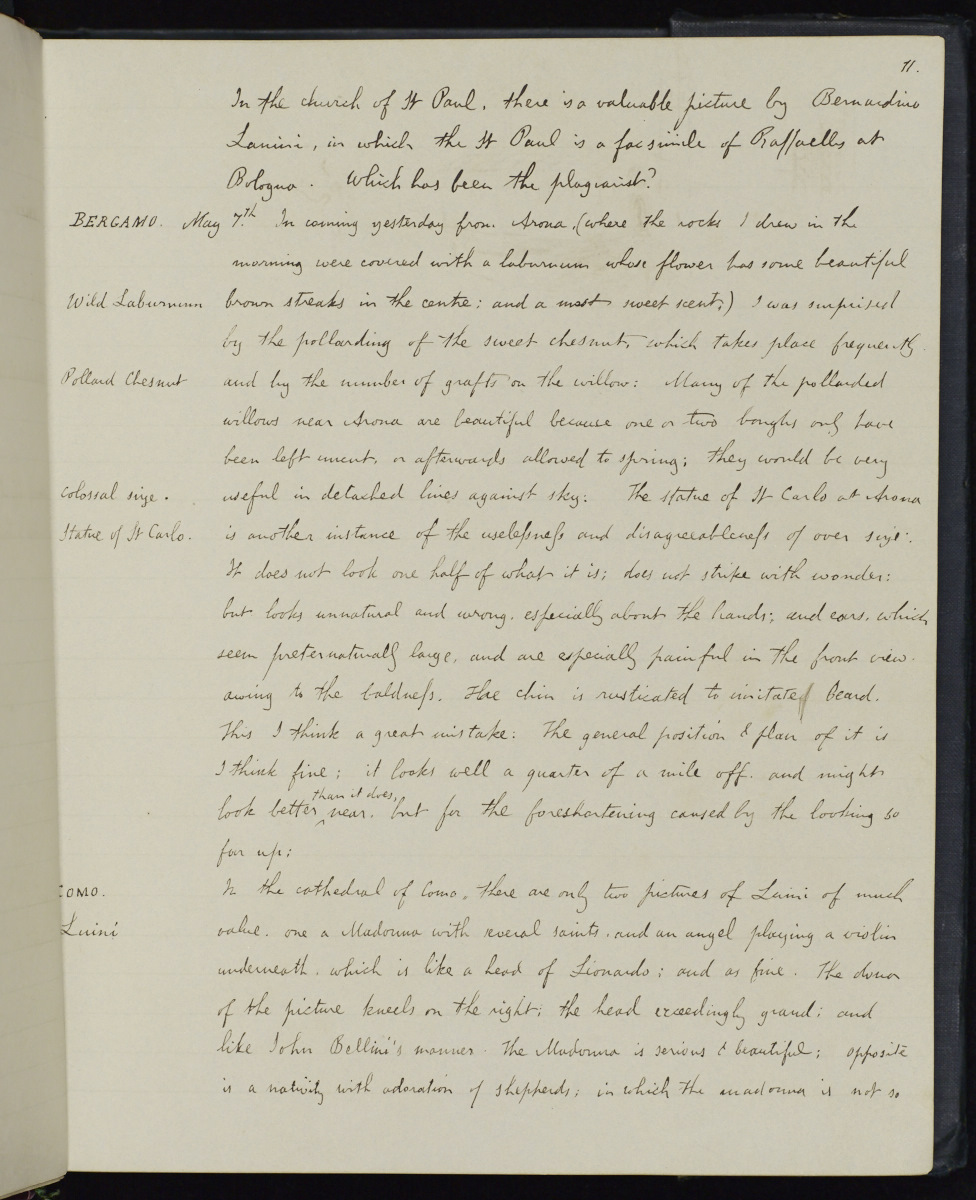 11.
In the church of St Paul, there is a valuable picture by Bernardino
Lanini, in which the St Paul is a facsimile of Raffaelles at
Bologna. Which has been the plagiarist?
BERGAMO. May 7.th In coming yesterday from Arona, (where the rocks I drew in the
morning were covered with a laburnum whose flower has some beautiful
Wild Laburnum brown streaks in the centre: and a most sweet scent,) I was surprised
by the pollarding of the sweet chesnut, which takes place frequently.
Pollard Chesnut and by the number of grafts on the willow: Many of the pollarded
willows near Arona are beautiful because one or two boughs only have
been left uncut, or afterwards allowed to spring; they would be very
colossal size. useful in detached lines against sky: The statue of St Carlo at Arona
Statue of St Carlo. is another instance of the uselessness and disagreeableness of over size:
It does not look one half of what it is; does not strike with wonder:
but looks unnatural and wrong, especially about the hands; and ears, which
seem preternaturally large, and are especially painful in the front view.
owing to the baldness. The chin is rusticated to imitate beard.
This I think a great mistake: The general position & plan of it is
I think fine; it looks well a quarter of a mile off. and might
look better than it does, near, but for the foreshortening caused by the looking so
far up;
COMO. In the cathedral of Como, there are only two pictures of Luini of much
Luini value. one a Madonna with several saints, and an angel playing a violin
underneath, which is like a head of Lionardo; and as fine. The donor
of the picture kneels on the right; the head exceedingly grand; and
like John Bellini's manner. The Madonna is serious & beautiful; opposite
is a nativity with adoration of shepherds; in which the madonna is not so